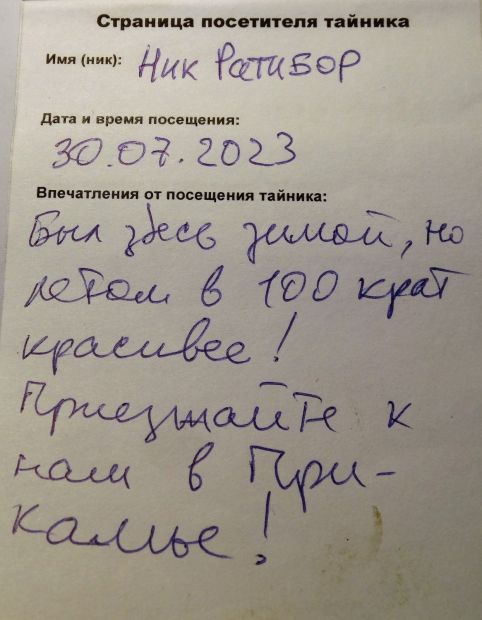 Страница посетителя тайника
Имя (ник): Ник Ратибор
Дата и время посещения:
30.07.2023
Впечатления от посещения тайника:
Был здесь зимой, но
летом в 100 крат
красивее!
Приезжайте к
нам в При-
камье!